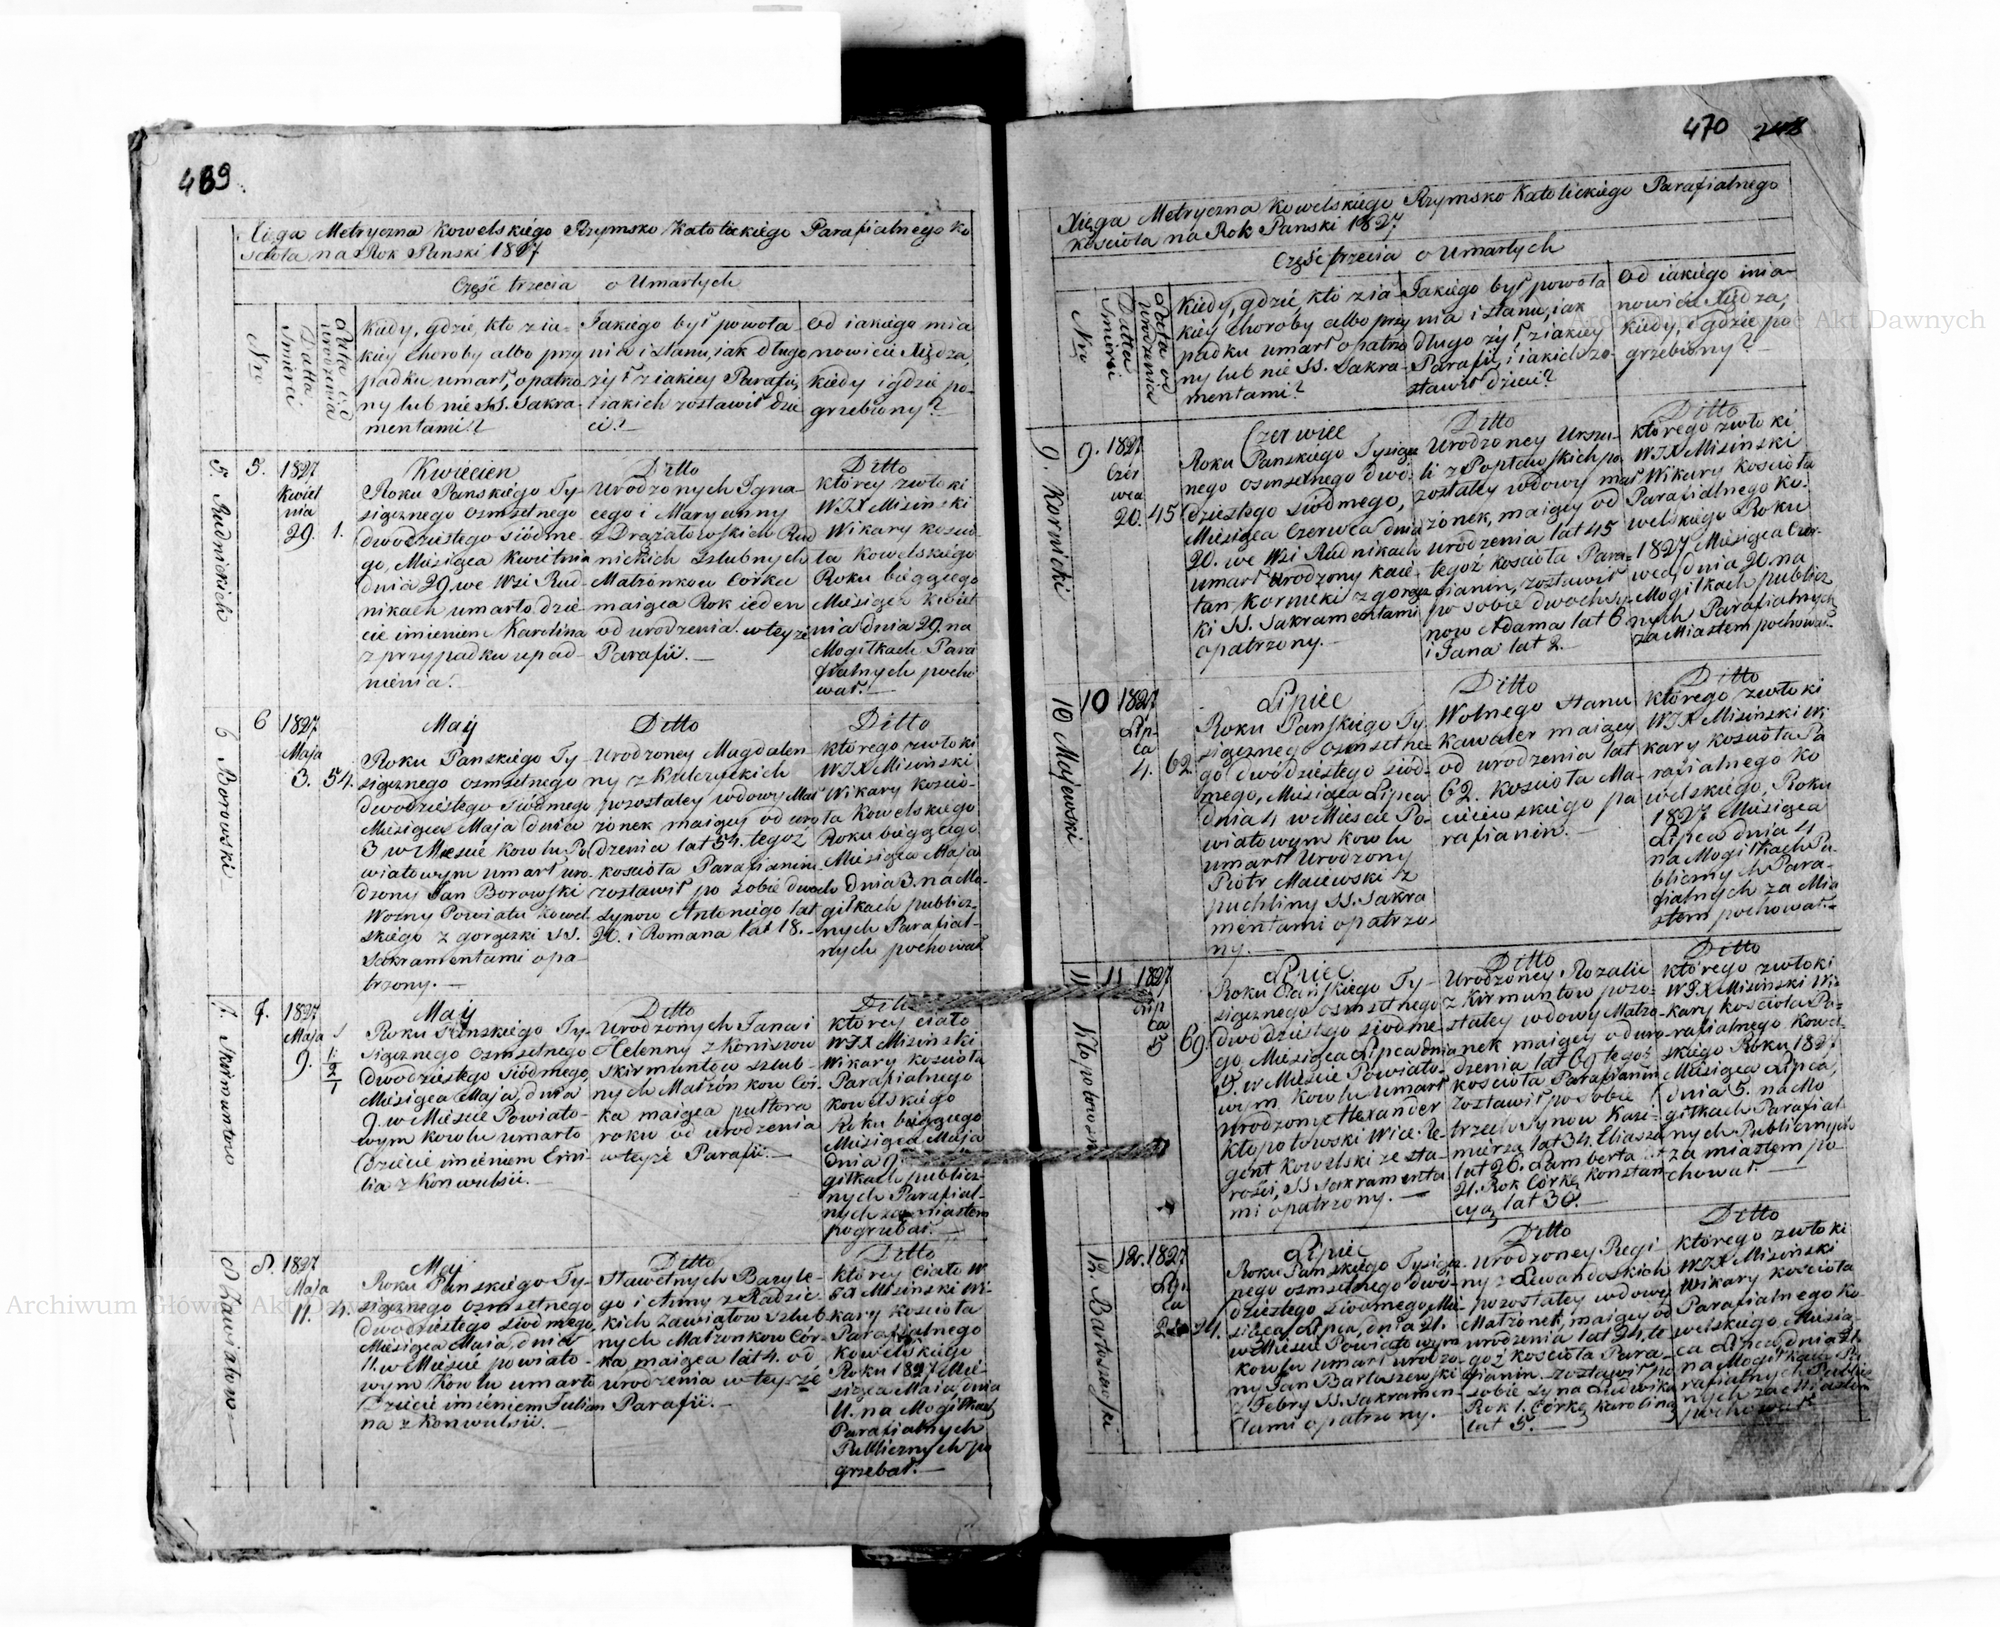 469
Xięga Metryczna Kowelskiego Rzymsko Katolickiego Parafialnego Ko
ścioła na Rok Panski 1827
Część trzecia o Umarłych
Nro
Datta Smierci
Data od urodzenia
Kiedy, gdzie, kto z ia-
kiey choroby albo przy
padku umarł, opatrzo
ny lub nie SS. Sakra-
mentami?
Jakiego był powoła
nia i stanu, jak długo
żył z iakiey Parafii,
i iakich zostawił dzie
ci?
Od iakiego mia
nowicie Xiędza,
kiedy i gdzie po-
grzebiony?
5. Rudnickich
5.
1827
Kwiet
nia
29.
1.
Kwiecien
Roku Panskiego Ty-
siącznego osmsetnego
dwodziestego siódme-
go, Miesiąca Kwietnia
dnia 29. we Wsi Rud-
nikach umarło dzie
cie imieniem Karolina
z przypadku upad-
nienia.
Ditto
Urodzonych Igna-
cego i Maryanny
z Drązatowskich Rud
nickich Szlubnych
Małżonkow Corka
maiąca Rok ieden
od urodzenia w teyże
Parafii.
Ditto
ktorey zwłoki
WJX Misiński
Wikary koscio-
ła Kowelskiego
Roku bieggcego
Miesiąca Kwiet
nia dnia 29. na
Mogiłkach Para
fialnych pocho
wał.
6 Borowski
6
1827
Maja
3.
54.
May
Roku Panskiego Ty-
siącznego osmsetnego
dwodziestego siódmego
Miesiąca Maja dnia
3 w Miescie Kowlu Po
wiatowym umarł uro-
dzony Jan Borowski
Wozny Powiatu Kowel
skiego z gorączki SS.
Sakramentami opa-
trzony.
Ditto
Urodzoney Magdalen
ny z
pozostałey wdowy Mał
żonek maiący od uro
dzenia lat 54. tegoż
kościoła Parafianin
zostawił po sobie dwoch
Synow Antoniego lat
20. i Romana lat 18.
Ditto
którego zwłoki
WJX Misiński
Wikary Koscio-
ła Kowelskiego
Roku bieggcego
Miesiąca Maja
dnia 3. na Mo-
giłkach publicz-
nych Parafial-
nych pochował
7. Skirmuntow
7.
1827
Maja
9.
1. 1/2
May
Roku Panskiego Ty-
siącznego osmsetnego
dwodziestego siódmego,
Miesiąca Maja, dnia
9. w Miescie Powiato-
wym Kowlu umarło
dziecie imieniem Emi-
lia z Konwulsii.
Ditto
Urodzonych Jana i
Helenny z Koniszow
Skirmuntow szlub-
nych Małżonkow Cór-
ka maiąca pułtora
roku od urodzenia
w teyże Parafii.
Ditto
ktorey ciało
WJX Misiński
Wikary kościoła
Parafialnego
Kowelskiego
Roku bieggcego
Miesiąca Maja
dnia 9.
giłkach publicz-
nych Parafial-
nych za miastem
pogrzebał.
8 Zawiałow
8.
1827
Maja
11.
4.
May
Roku Panskiego Ty-
siącznego osmsetnego
dwodziestego siodmego,
Miesiąca Maia, dnia
11. w Miescie powiato-
wym Kowlu umarło
Dziecie imieniem Julian
na z Konwulsii.
Ditto
Sławetnych Bazyle-
go i Anny z Radzie
kich Zawiałow szlub
nych Małżonkow Cór-
ka maiąca lat 4. od
urodzenia w teyże
Parafii.
Ditto
ktorey Ciało W
JX Misiński Wi-
kary kościoła
Parafialnego
Kowelskiego
Roku 1827 Mie-
siąca Maia, dnia
11. na Mogiłkach
Parafialnych
Publicznych po
grzebał.
470 248
Xięga Metryczna Kowelskiego Rzymsko Katolickiego Parafialnego
Kościoła na Rok Panski 1827
Część trzecia o Umarłych
Nro
Datta Smierci
Data od urodzenia
Kiedy, gdzie, kto z ia-
kiey choroby albo przy
padku umarł opatrzo
ny lub nie SS. Sakra-
mentami?
Jakiego był powoła
nia i stanu, jak
długo żył, z iakiey
Parafii, i iakich zo-
stawił dzieci?
Od iakiego mia-
nowicie Xiędza,
kiedy, i gdzie po
grzebiony?
9. Kornicki
9.
1827
Czer
wca
20.
45
Czerwiec
Roku Panskiego Tysiącz
nego osmsetnego dwo-
dziestego siódmego,
Miesiąca Czerwca dnia
20. we Wsi Rudnikach
umarł Urodzony Kaie-
tan Kornicki z gorącz
ki SS. Sakramentami
opatrzony.
Ditto
Urodzoney Urszu-
li z Popławskich po
zostałey wdowy mał
żonek, maiący od
urodzenia lat 45
tegoż kościoła Para-
fianin, zostawił
po sobie dwoch Sy-
now Adama lat 6
i Jana lat 2.
Ditto
którego zwłoki
WJX Misiński
Wikary Kościoła
Parafialnego Ko-
welskiego Roku
1827 Miesiąca Czer-
wca, dnia 20. na
Mogiłkach publicz
nych Parafialnych
za Miastem pochował.
10 Majewski
10
1827
Lip-
ca
4.
62.
Lipiec
Roku Panskiego Ty-
siącznego osmsetne-
go dwódziestego siód-
mego, Miesiąca Lipca
dnia 4 w Miescie Po-
wiatowym Kowlu
umarł Urodzony
Piotr Maiewski z
puchliny SS. Sakra
mentami opatrzo-
ny.
Ditto
Wolnego stanu
Kawaler maiący
od urodzenia lat
62. kościoła Ma-
ciewskiego pa
rafianin.
Ditto
którego zwłoki
WJX Misiński Wi
kary kościoła Pa
rafialnego Ko
welskiego, Roku
1827 Miesiąca
Lipca dnia 4
na Mogiłkach Pu-
blicznych Para-
fialnych za Mia
stem pochował.
11 Kłopotowski
11
1827
Lip
ca
5
69.
Lipiec
Roku Panskiego Ty-
siącznego osmsetnego
dwodziestego siodme-
go, Miesiąca Lipca dnia
5. w Miescie Powiato-
wym Kowlu umarł
urodzony Alexander
Kłopotowski Wice Re-
gent Kowelski ze sta-
rości, SS Sakramenta
mi opatrzony.
Ditto
Urodzoney Rozalii
z Kirmuntow pozo-
stałey wdowy Małżo-
nek maiący od uro-
dzenia lat 69 tegoż
kościoła Parafianin
zostawił po sobie
trzech Synow Kazi-
mierza lat 34. Eliasza
lat 26. Lamberta
21. Rok Córkę Konstan
cyą lat 30.
Ditto
którego zwłoki
WJX Misiński Wi-
kary kościoła Pa-
rafialnego Kowel-
skiego Roku 1827
Miesiąca Lipca,
dnia 5. na Mo
giłkach Parafial
nych Publicznych
za miastem po-
chował.
12. Bartoszewski
12.
1827
Lip-
ca
24.
Lipiec
Roku Panskiego Tysiącz-
nego osmsetnego dwó-
dziestego siodmego Mie-
siąca Lipca, dnia 21.
w Miescie Powiatowym
Kowlu umarł urodzo-
ny Jan Bartoszewski
z Febry SS. Sakramen-
tami opatrzony.
Ditto
Urodzoney Regi
ny z Lewandoskich
pozostałey wdowy
Małżonek, maiący od
urodzenia lat 24. te-
goż kościoła Para-
fianin zostawił po
sobie Syna Ludwika
Rok 1. Córkę Karolinę
lat 5.
Ditto
którego zwłoki
WJX Misiński
Wikary Kościoła
Parafialnego Ko-
welskiego Miesią-
ca Lipca, dnia 21.
na Mogiłkach Pa-
rafialnych Publicz
nych za Miastem
pochował.
Archiwum Główne Akt Dawnych
Archiwum Główne Akt Dawnych